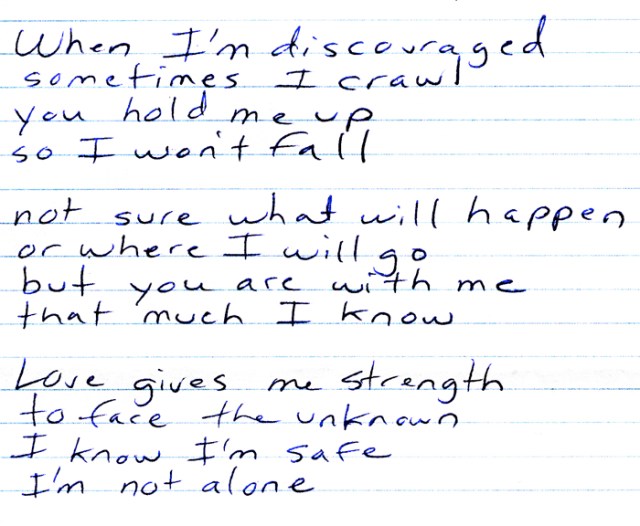 When I'm discouraged
sometimes I crawl
you hold me up
so I won't fall
not sure what will happen
or where I will go
but you are with me
that much I know
Love gives me strength
to face the unknown
I know I'm safe
I'm not alone